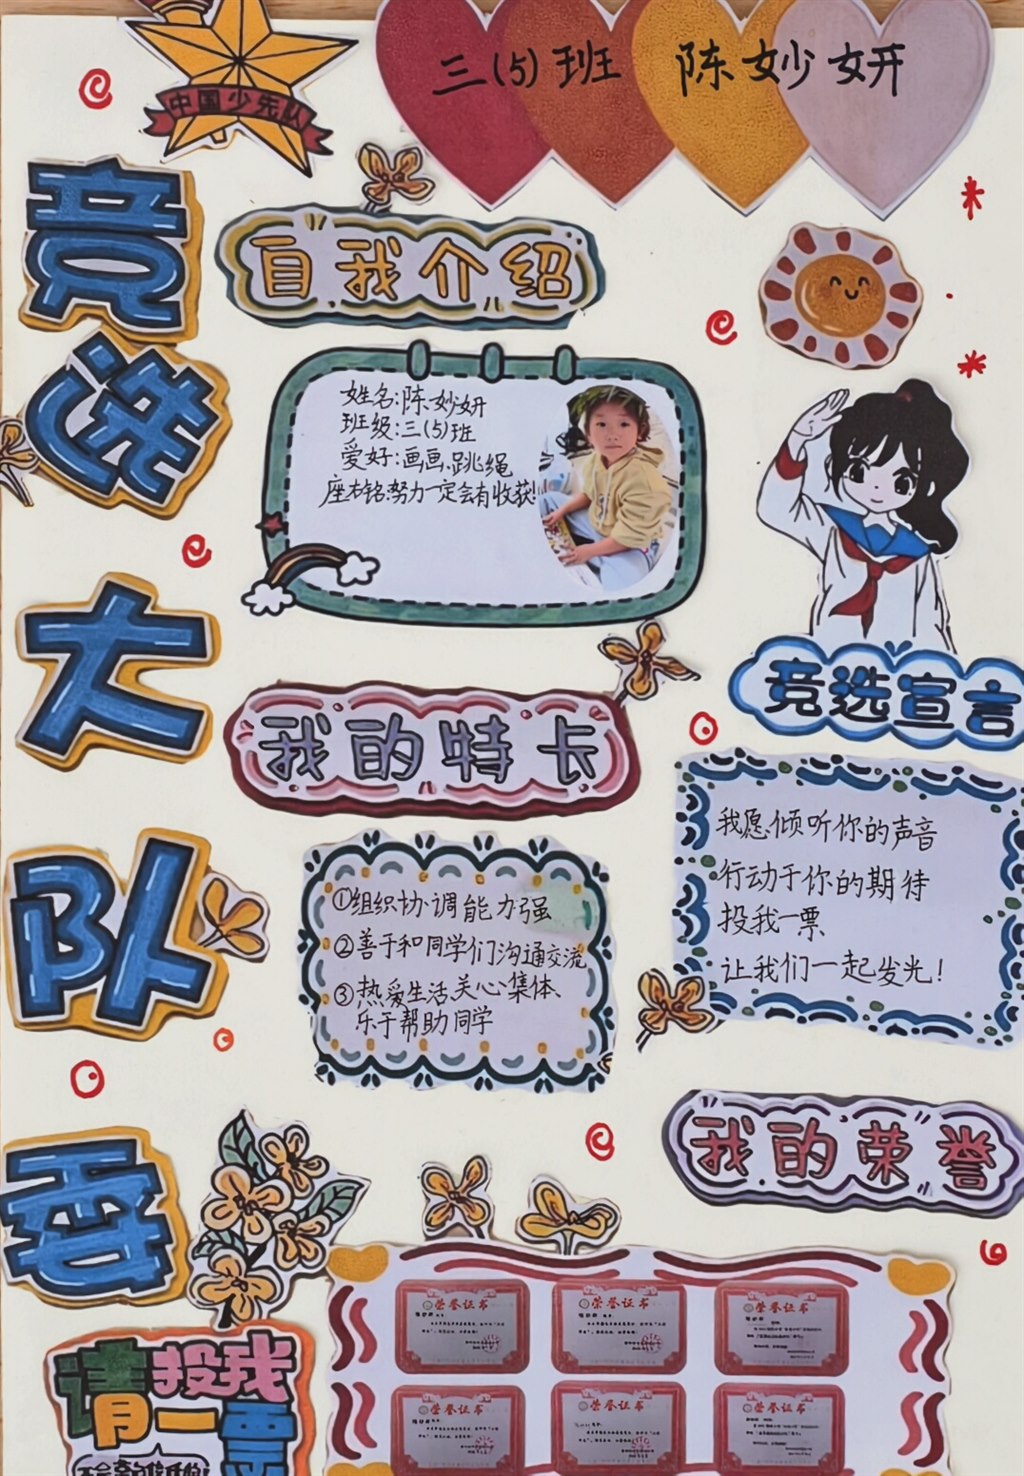 三(5)班 陈妙妍
中国少先队
竞选大队委
自我介绍
姓名:陈妙妍
班级:三(5)班
爱好:画画、跳绳
座右铭:努力一定会有收获!
我的特长
①组织协调能力强
②善于和同学们沟通交流
③热爱生活、关心集体、
乐于帮助同学
竞选宣言
我愿倾听你的声音
行动于你的期待
投我一票
让我们一起发光!
我的荣誉
荣誉证书
荣誉证书
荣誉证书
荣誉证书
荣誉证书
荣誉证书
请投我
一票